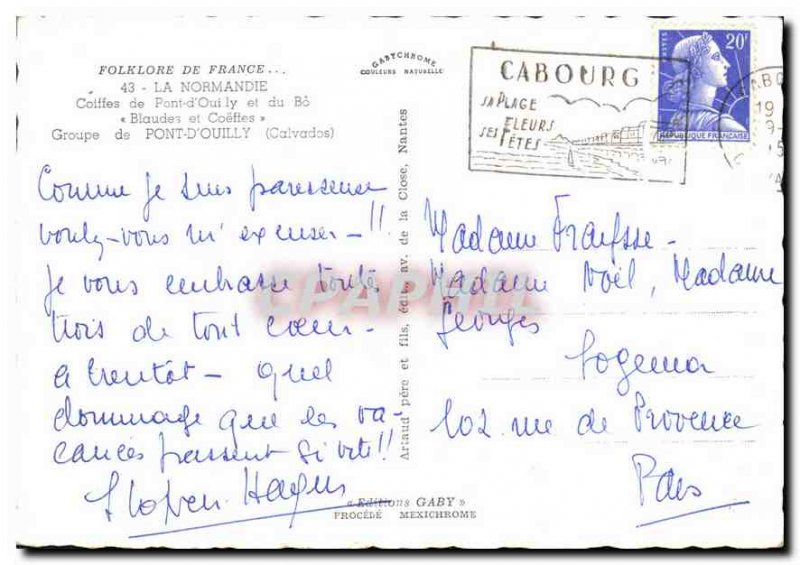 FOLKLORE DE FRANCE...
43 - LA NORMANDIE
Coiffes de Pont-d'Ouilly et du Bô
« Blaudes et Coëffes »
Groupe de PONT-D'OUILLY (Calvados)
GABYCHROME
COULEURS NATURELLES
CABOURG
SA PLAGE
FLEURS
SES FÊTES
POSTES
20F
REPUBLIQUE FRANÇAISE
Comme je suis paresseuse
voulez-vous m'excuser - !!
je vous embrasse toutes
trois de tout coeur -
à bientôt - quel
dommage que les va-
cances passent si vite!!
Artaud père et fils, édit., av. de la Close, Nantes
Madame
Madame Noël, Madame
Georges
Sogema
102 rue de Provence
Paris
« Editions GABY »
PROCÉDÉ MEXICHROME
CPAPHIL